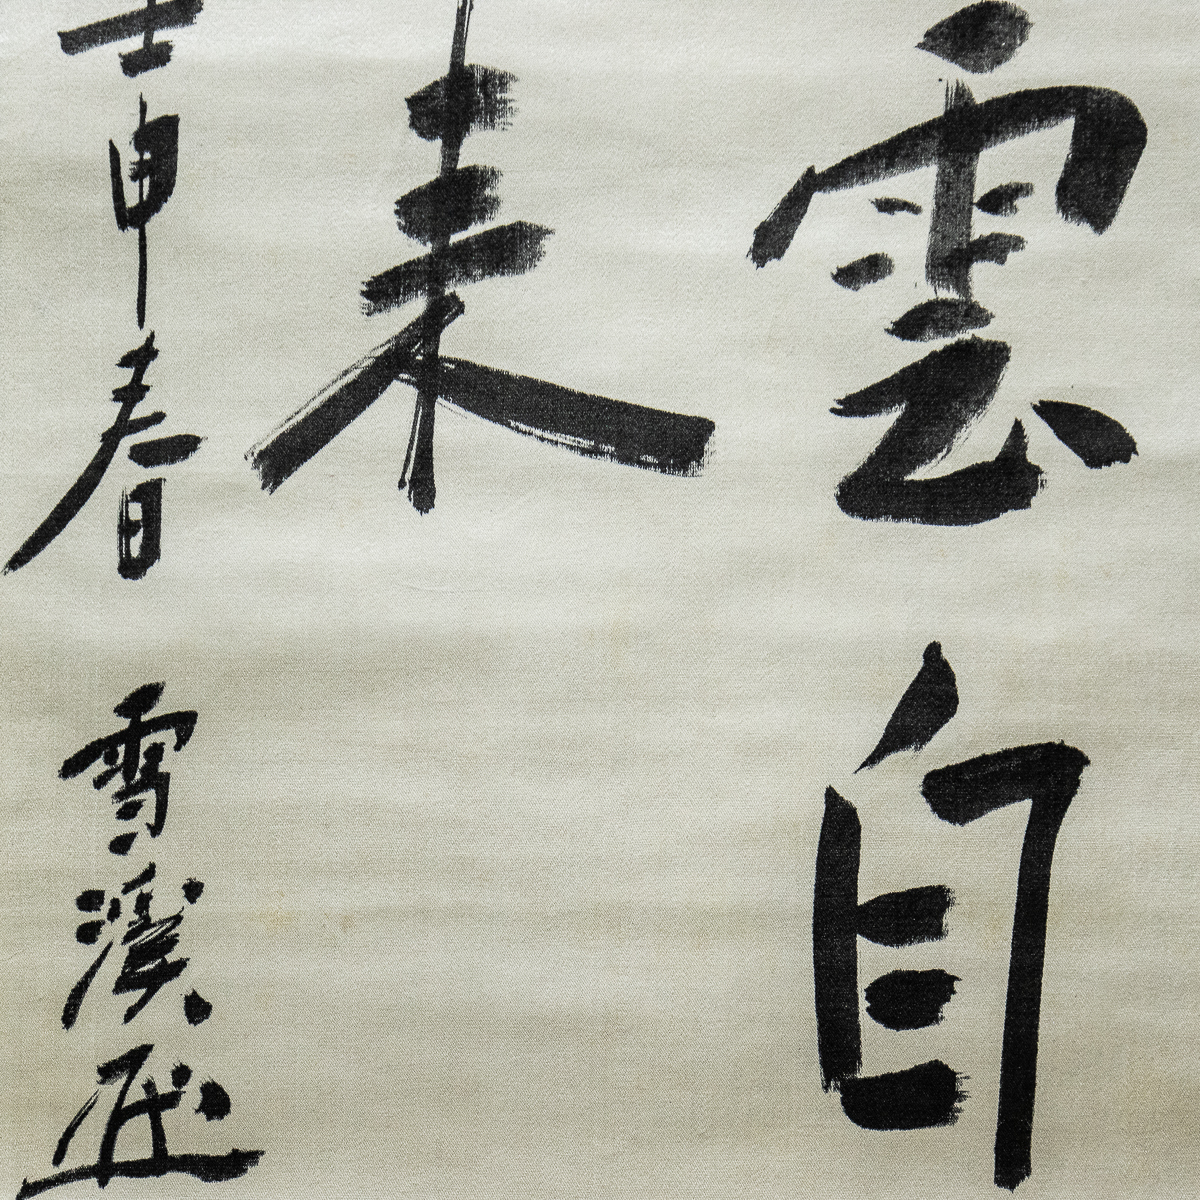 雲自
来
壬申春 雪溪